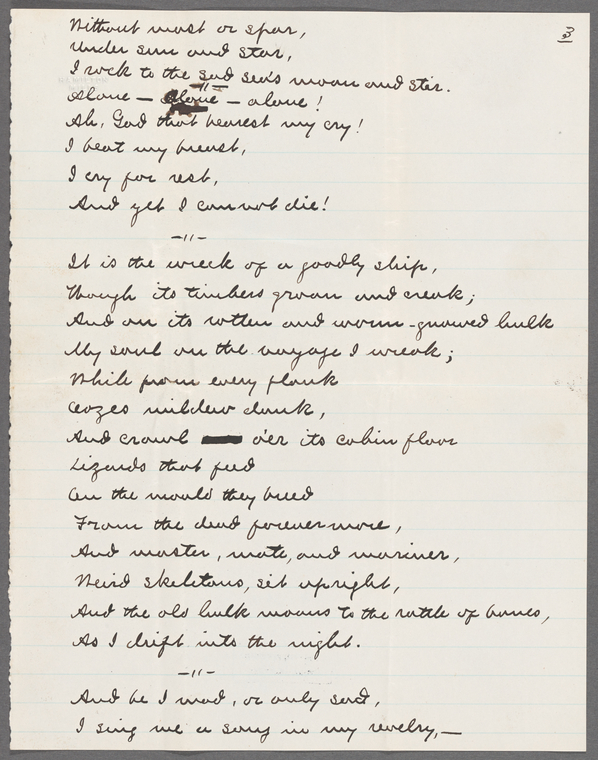 3
Without mast or spar,
Under sun and star,
I rock to the sad sea's moan and stir.
-"-
Alone — alone — alone!
Ah, God that hearest my cry!
I beat my breast,
I cry for rest,
And yet I cannot die!
-"-
It is the wreck of a goodly ship,
Though its timbers groan and creak;
And on its rotten and worm-gnawed hulk
My soul on the voyage I wreak;
While from every plank
Oozes mildew dank,
And crawl o'er its cabin floor
Lizards that feed
On the mould they breed
From the dead forevermore,
And master, mate, and mariner,
Weird skeletons, sit upright,
And the old hulk moans to the rattle of bones,
As I drift into the night.
-"-
And be I mad, or only sad,
I sing me a song in my revelry, —